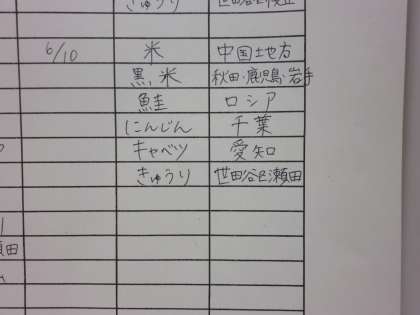 きゅうり
6/10 米 中国地方
黒米 秋田・鹿児島・岩手
鮭 ロシア
にんじん 千葉
キャベツ 愛知
きゅうり 世田谷区瀬田
田